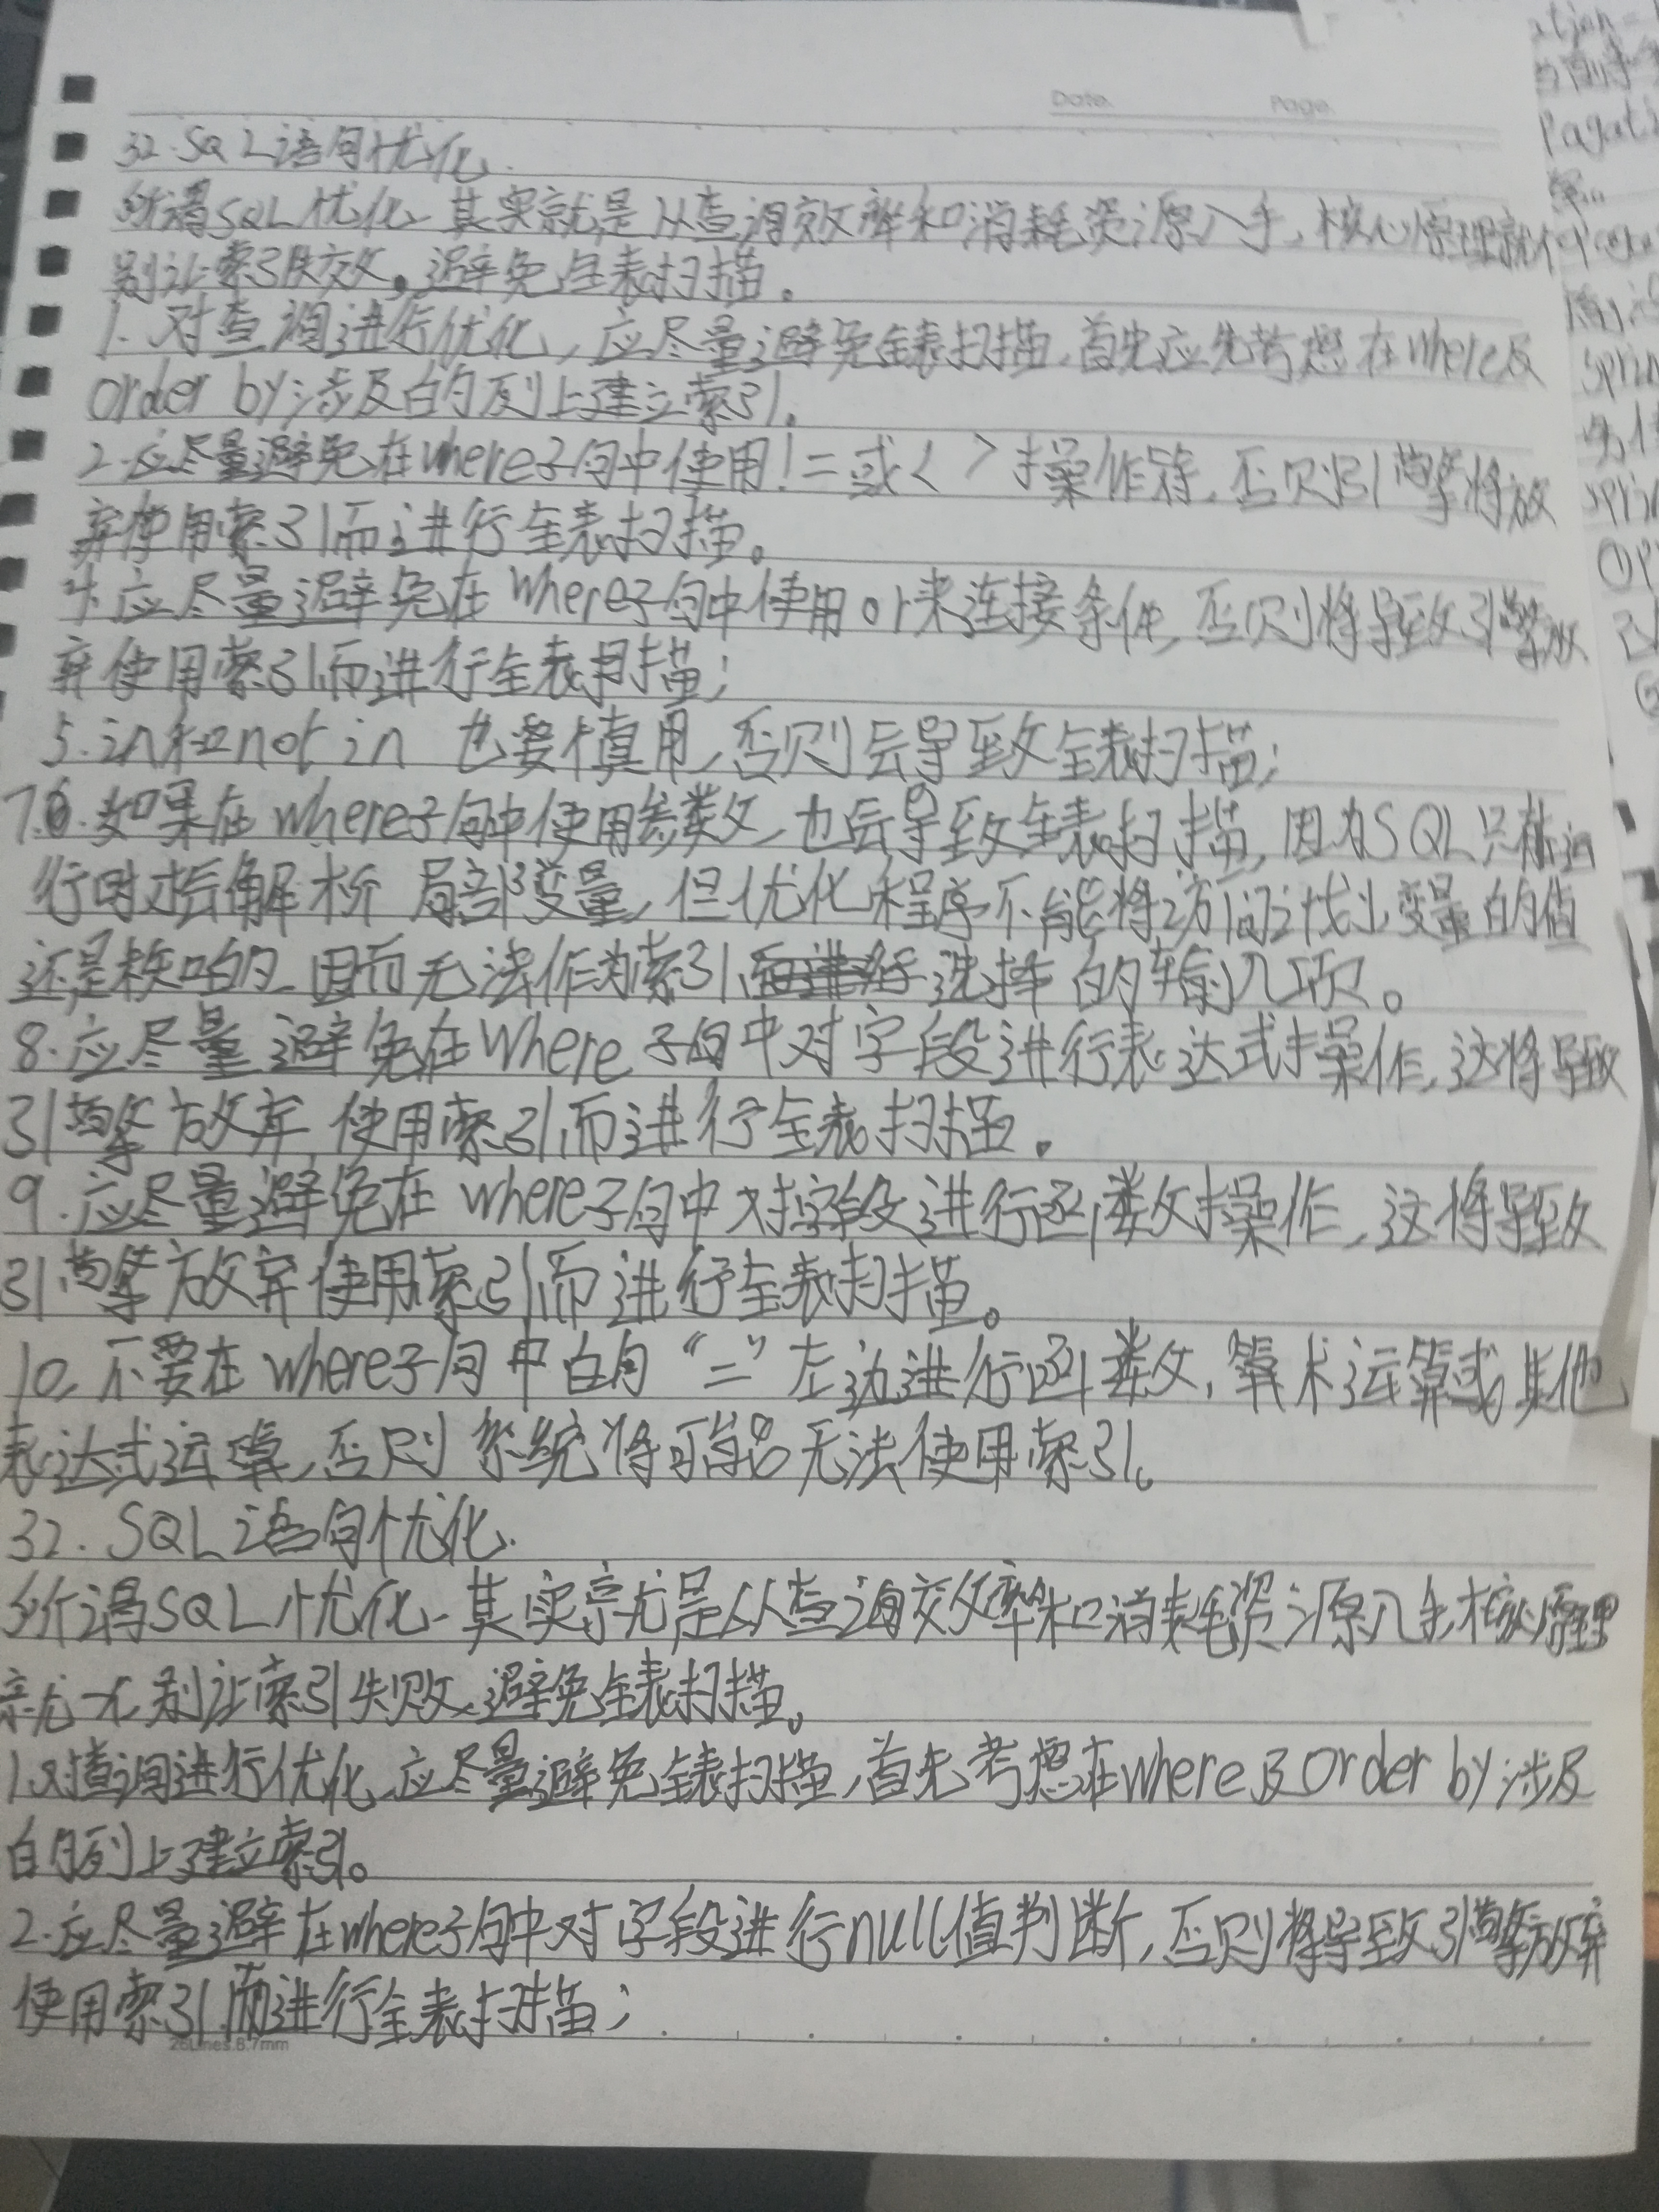 Date. Page.
32. SQL语句优化.
所谓SQL优化、其实就是从查询效率和消耗资源入手、核心原理就
别让索引失效。避免全表扫描。
1. 对查询进行优化, 应尽量避免全表扫描、首先应先考虑在where及
order by涉及的列上建立索引。
2.应尽量避免在where子句中使用!=或<>操作符, 否则引擎将放
弃使用索引而进行全表扫描。
4.应尽量避免在where子句中使用or来连接条件, 否则将导致引擎放
弃使用索引而进行全表扫描;
5.in和not in 也要慎用, 否则会导致全表扫描;
7.如果在where子句中使用参数, 也会导致全表扫描, 因为SQL只有运
行时才会解析 局部变量, 但优化程序不能将访问计划 变量的值
还是未知的、因而无法作为索引 选择的输入项。
8.应尽量避免在where子句中对字段进行表达式操作, 这将导致
引擎放弃使用索引而进行全表扫描。
9.应尽量避免在where子句中对字段进行函数操作, 这将导致
引擎放弃使用索引而进行全表扫描。
10.不要在where子句中的“=”左边进行函数, 算术运算或其他
表达式运算, 否则系统将可能无法使用索引。
32. SQL语句优化.
所谓SQL优化、其实就是从查询效率和消耗资源入手,核心原理
就 别让索引失败、避免全表扫描。
1.对查询进行优化、应尽量避免全表扫描, 首先考虑在where及order by涉及
的列上建立索引。
2.应尽量避在where子句中对字段进行null值判断, 否则将导致引擎放弃
使用索引而进行全表扫描;
26Lines.8.7mm